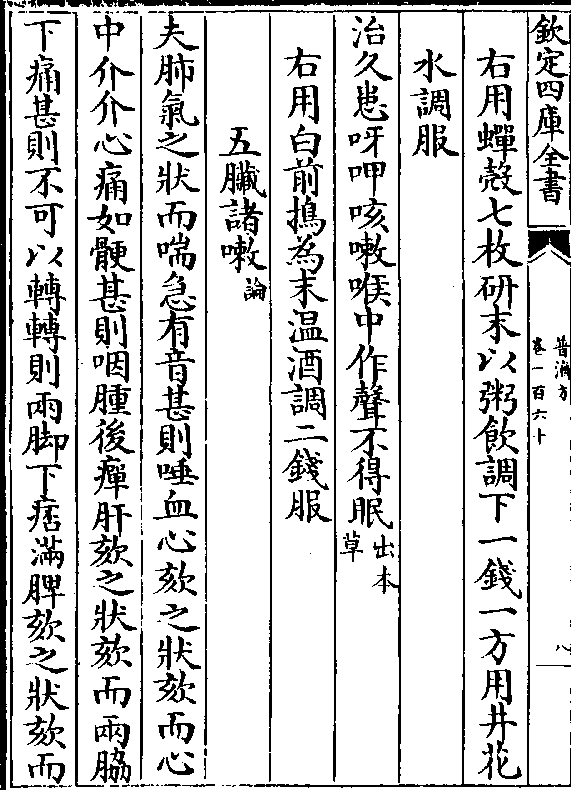 欽定四庫全書
普濟方
卷一百六十
八
右用蟬殼七枚研末以粥飲調下一錢一方用井花
水調服
治久患呀呷咳嗽喉中作聲不得眠出本草
右用白前搗為末温酒調二錢服
五臟諸嗽論
夫肺氣之狀而喘急有音甚則唾血心欬之狀欬而心
中介介心痛如骾甚則咽腫後痺肝欬之狀欬而兩脇
下痛甚則不可以轉轉則兩脚下痞滿脾欬之狀欬而